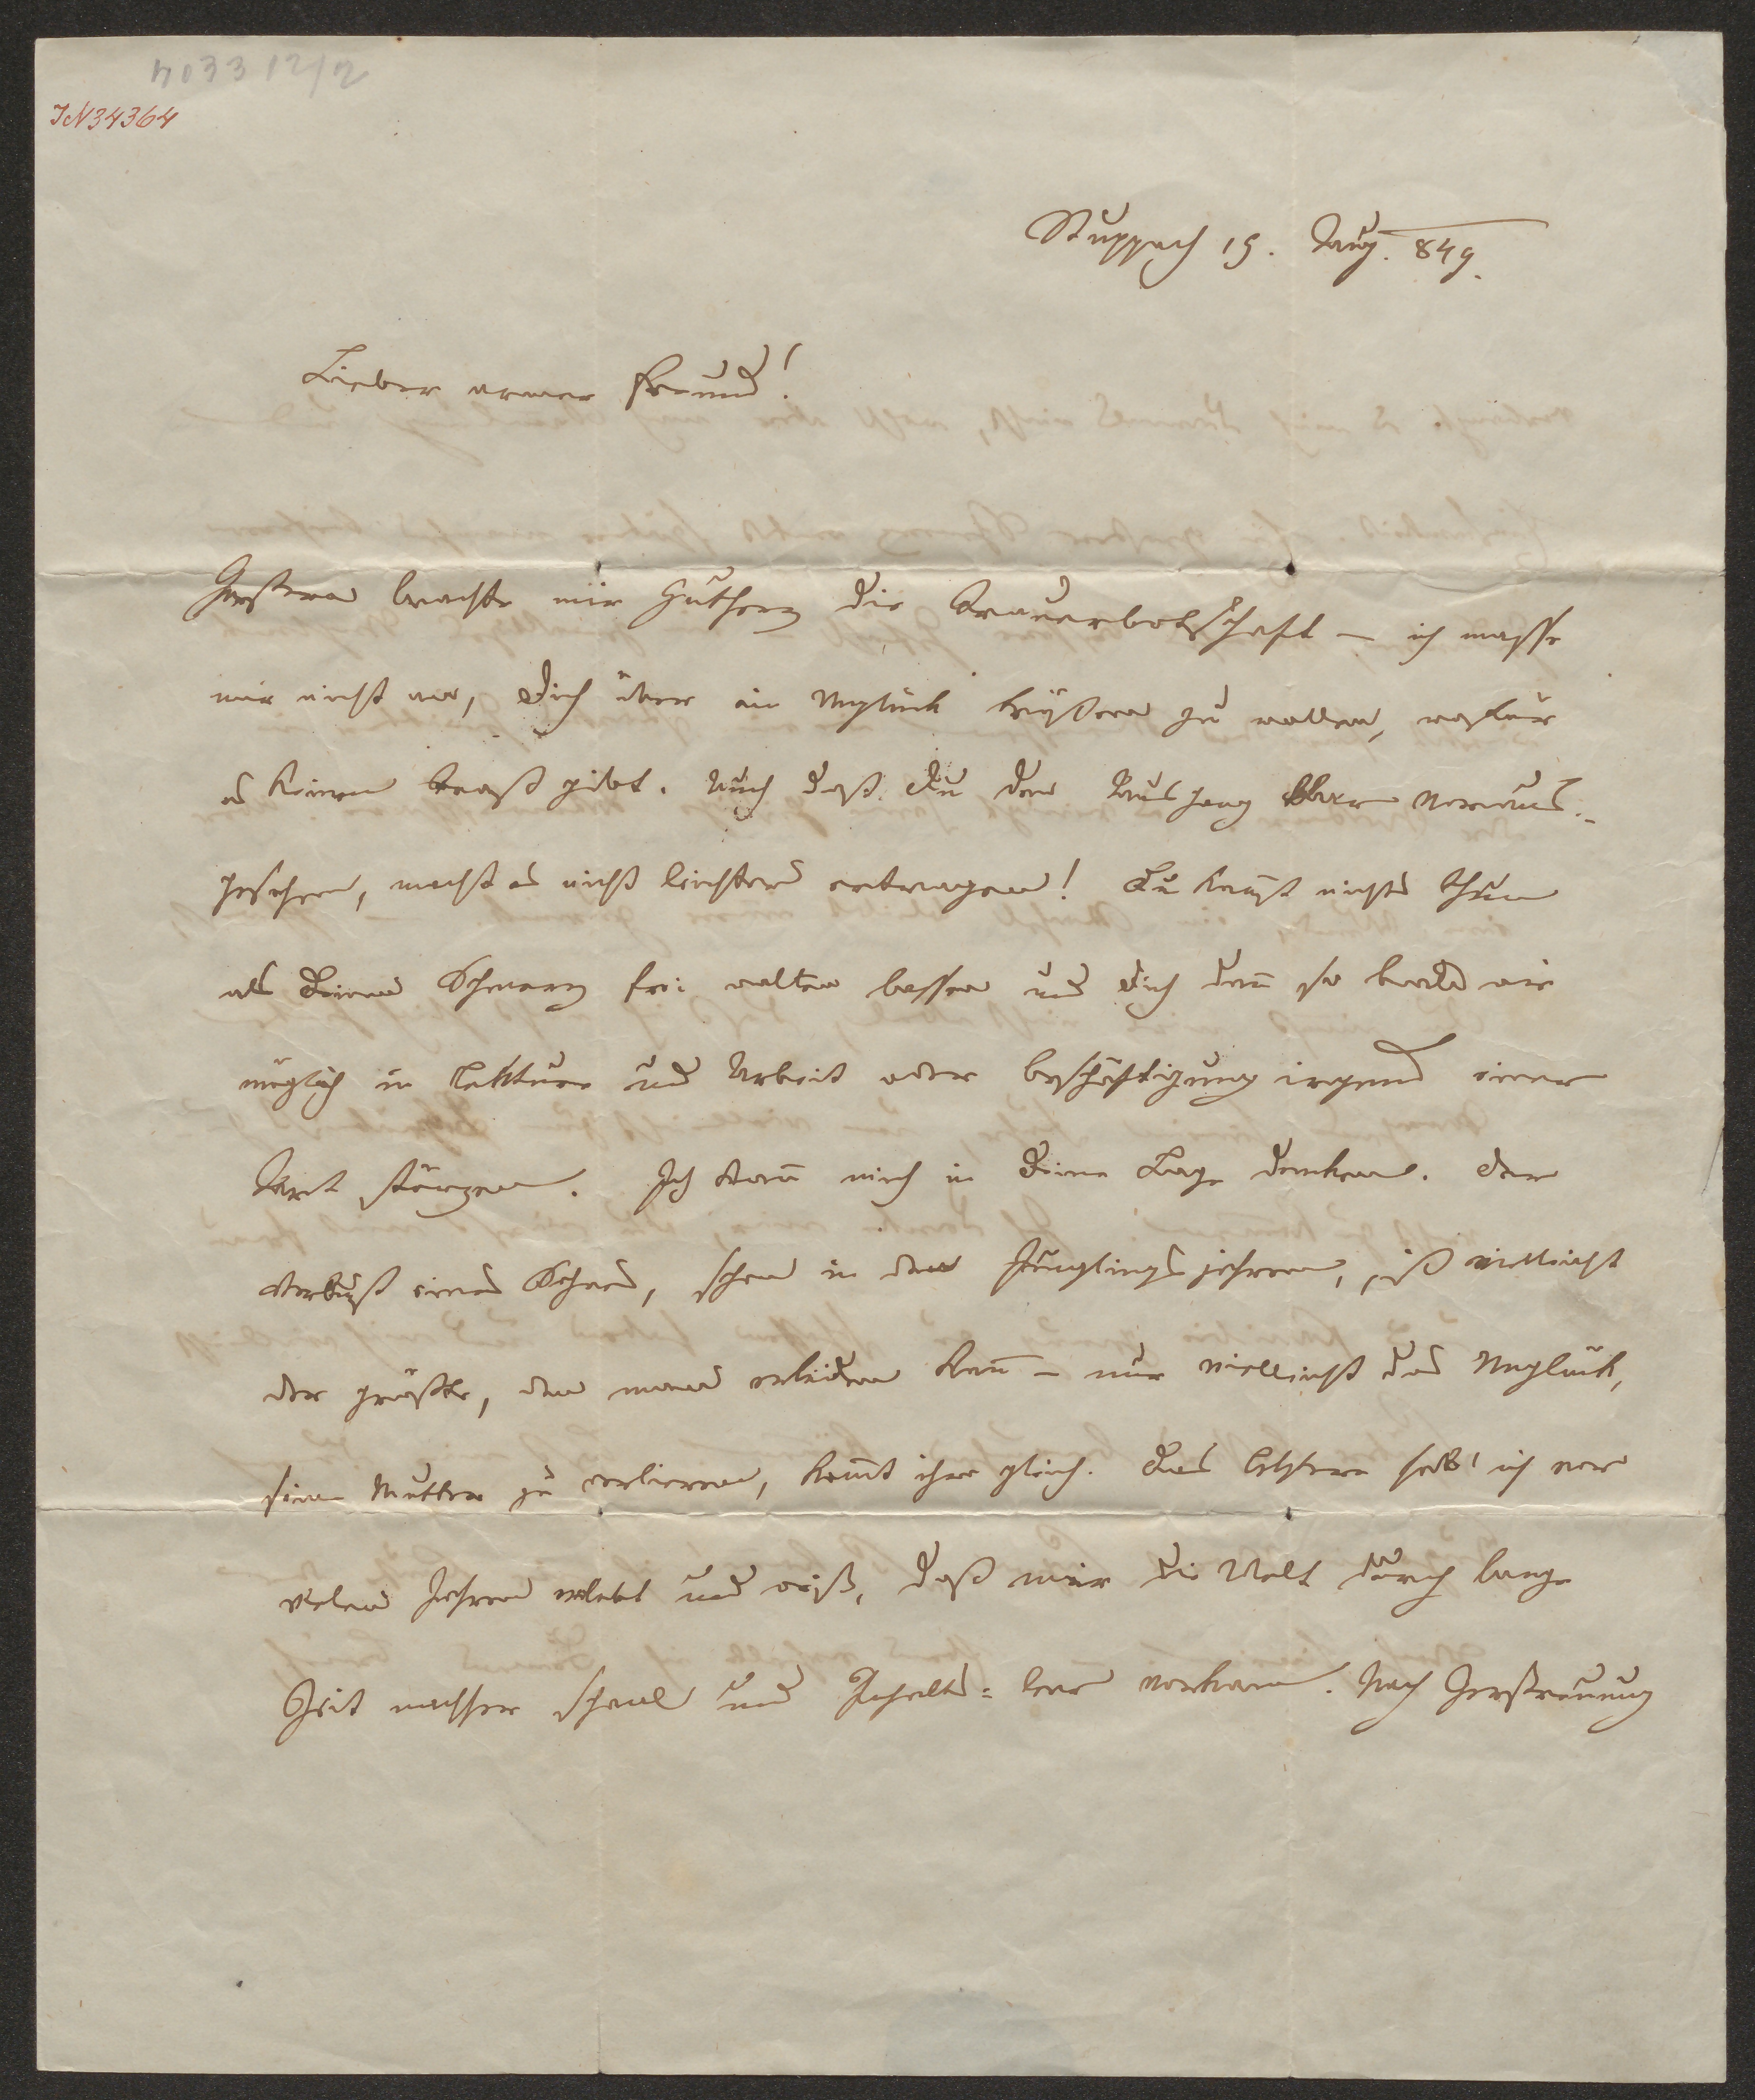 403312/2
IN34364
Stuppach 19. Aug. 849.
Lieber armer Freund!
Gestern brachte mir Gutherz die Trauerbotschaft – ich masse
mir nicht an, Dich über ein Unglück trösten zu wollen, wofür
es keinen Trost gibt. Auch daß Du den Ausgang klar voraus-
gesehen, macht es nicht leichter ertragen! Du kannst nichts thun
als Deinen Schmerz frei walten lassen und Dich dann so bald wie
möglich in Lektüre und Arbeit oder Beschäftigung irgend einer
Art stürzen. Ich kann mich in Deine Lage denken. Der
Verlust eines Sohnes, schon in den Jünglingsjahren, ist vielleicht
der größte, den man erleiden kann – nur vielleicht das Unglück,
seine Mutter zu verlieren, kommt ihm gleich. Das letztere hab' ich vor
vielen Jahren erlebt und weiß, daß mir die Welt durch lange
Zeit nachher schaal und Inhalts=leer vorkam. Nach Zerstreuung